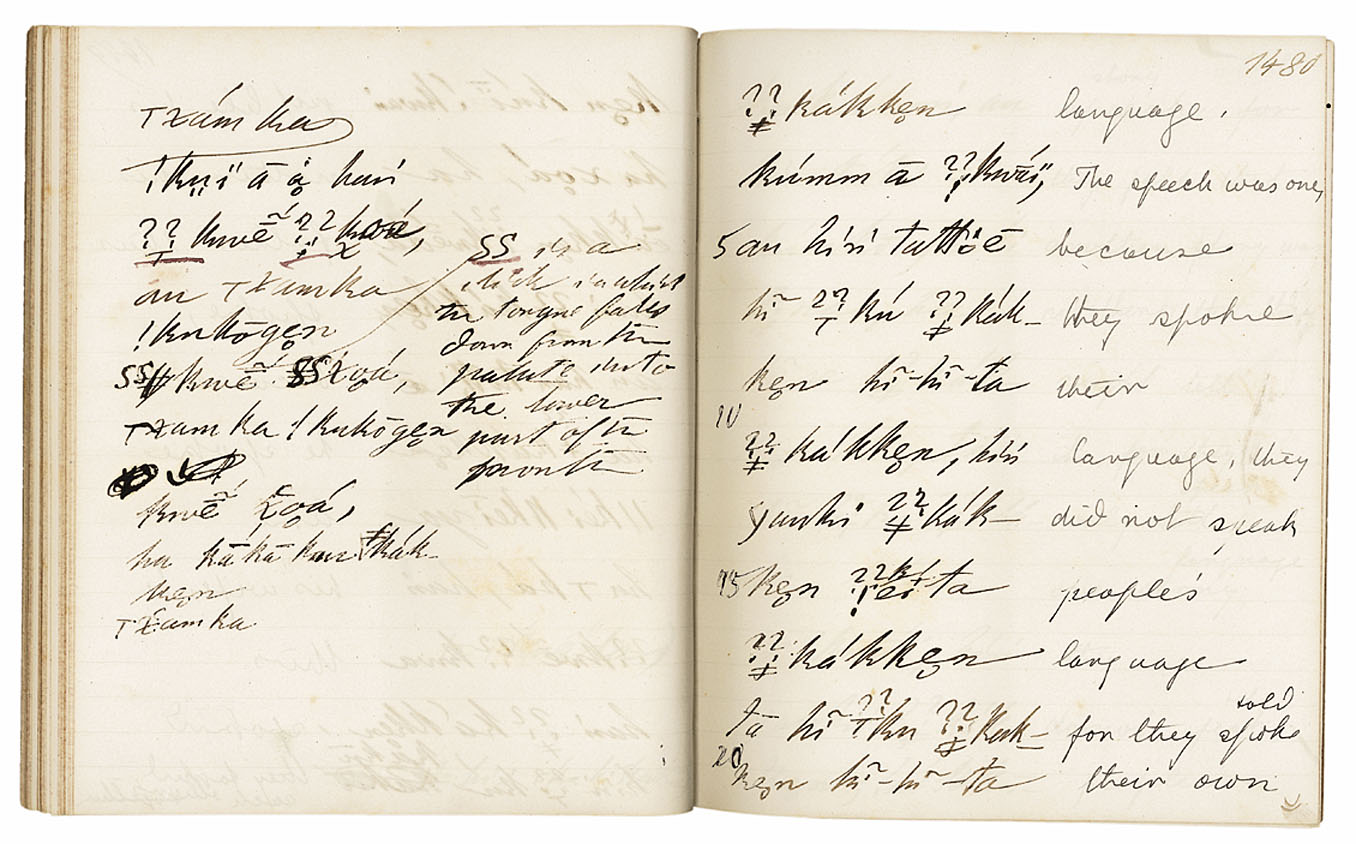 Txám ka
!kui ā å hari
⁇ kuẽ ⁇ koá,
au Txam ka
!kukōgen
SS kuẽ SS χoá,
Txam ka !kukōgen
kuẽ χoá,
ha kā kā kau ǂkák-
ken
Txam ka
SS is a
click in which
the tongue falls
down from the
palate into
the lower
part of the
mouth
1480
⁇ǂ kákken language.
kúmm ā ⁇! kuái, The speech was one,
5 au hiri tattōē because
hĩ ⁇ kú ⁇ǂ kák- they spoke
ken hĩ-hĩ-ta their
10
⁇ǂ kákken, hiri language, they
yauki ⁇ǂ kák- did not speak
15 ken ⁇!éi ta people's
⁇ǂ kákken language
told
ta hĩ ⁇ ku ⁇ǂ kak- for they spoke
20
ken hĩ-hĩ-ta their own